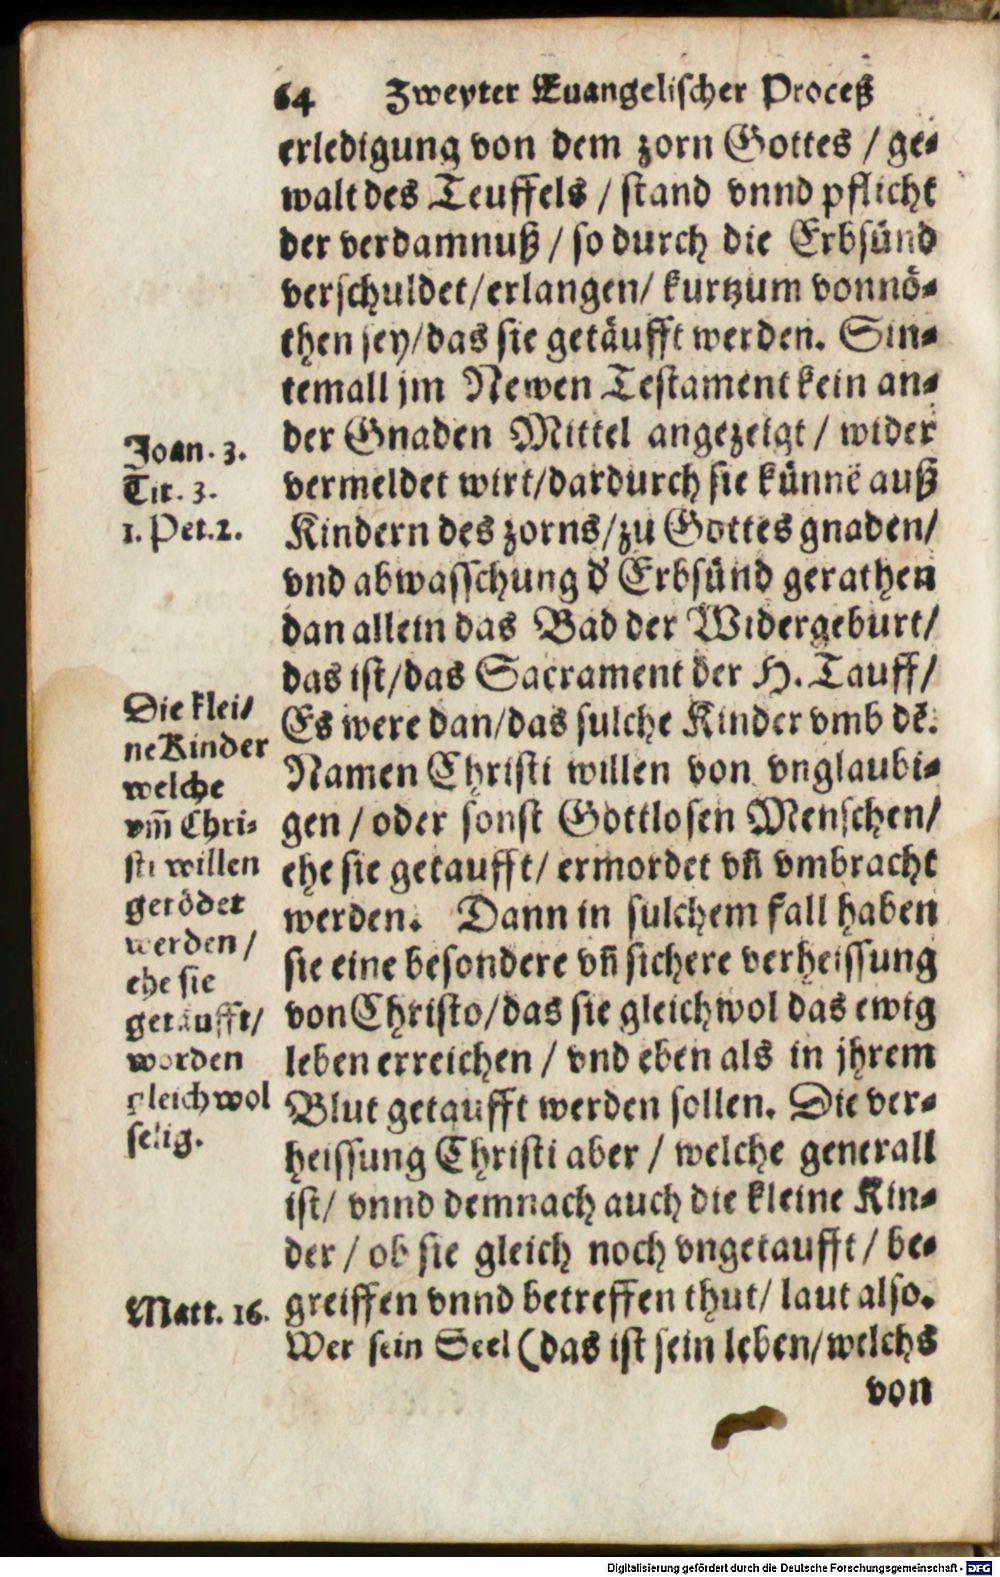 64 Zweyter Euangelischer Proceß
erledigung von dem zorn Gottes / ge-
walt des Teuffels / stand vnnd pflicht
der verdamnuß / so durch die Erbsünd
verschuldet/erlangen/ kurtzum vonnö-
then sey/das sie getäufft werden. Sin-
temall jm Newen Testament kein an-
der Gnaden Mittel angezeigt / wider
vermeldet wirt/dardurch sie künnē auß
Kindern des zorns/zu Gottes gnaden/
vnd abwasschung d' Erbsünd gerathen
dan allein das Bad der Widergeburt/
das ist/das Sacrament der H. Tauff/
Es were dan/das sulche Kinder vmb dē.
Namen Christi willen von vnglaubi-
gen / oder sonst Gottlosen Menschen/
ehe sie getaufft/ ermordet vñ vmbracht
werden. Dann in sulchem fall haben
sie eine besondere vñ sichere verheissung
von Christo/das sie gleichwol das ewig
leben erreichen / vnd eben als in jhrem
Blut getaufft werden sollen. Die ver-
heissung Christi aber / welche generall
ist/ vnnd demnach auch die kleine Kin-
der / ob sie gleich noch vngetaufft / be-
greiffen vnnd betreffen thut/ laut also.
Wer sein Seel (das ist sein leben/welchs
von
Joan. 3.
Tit. 3.
1. Pet.2.
Die klei/
ne Kinder
welche
vm̄ Chri-
sti willen
getödet
werden /
ehe sie
getäufft/
worden
gleichwol
selig.
Matt. 16.
Digitalisierung gefördert durch die Deutsche Forschungsgemeinschaft - DFG